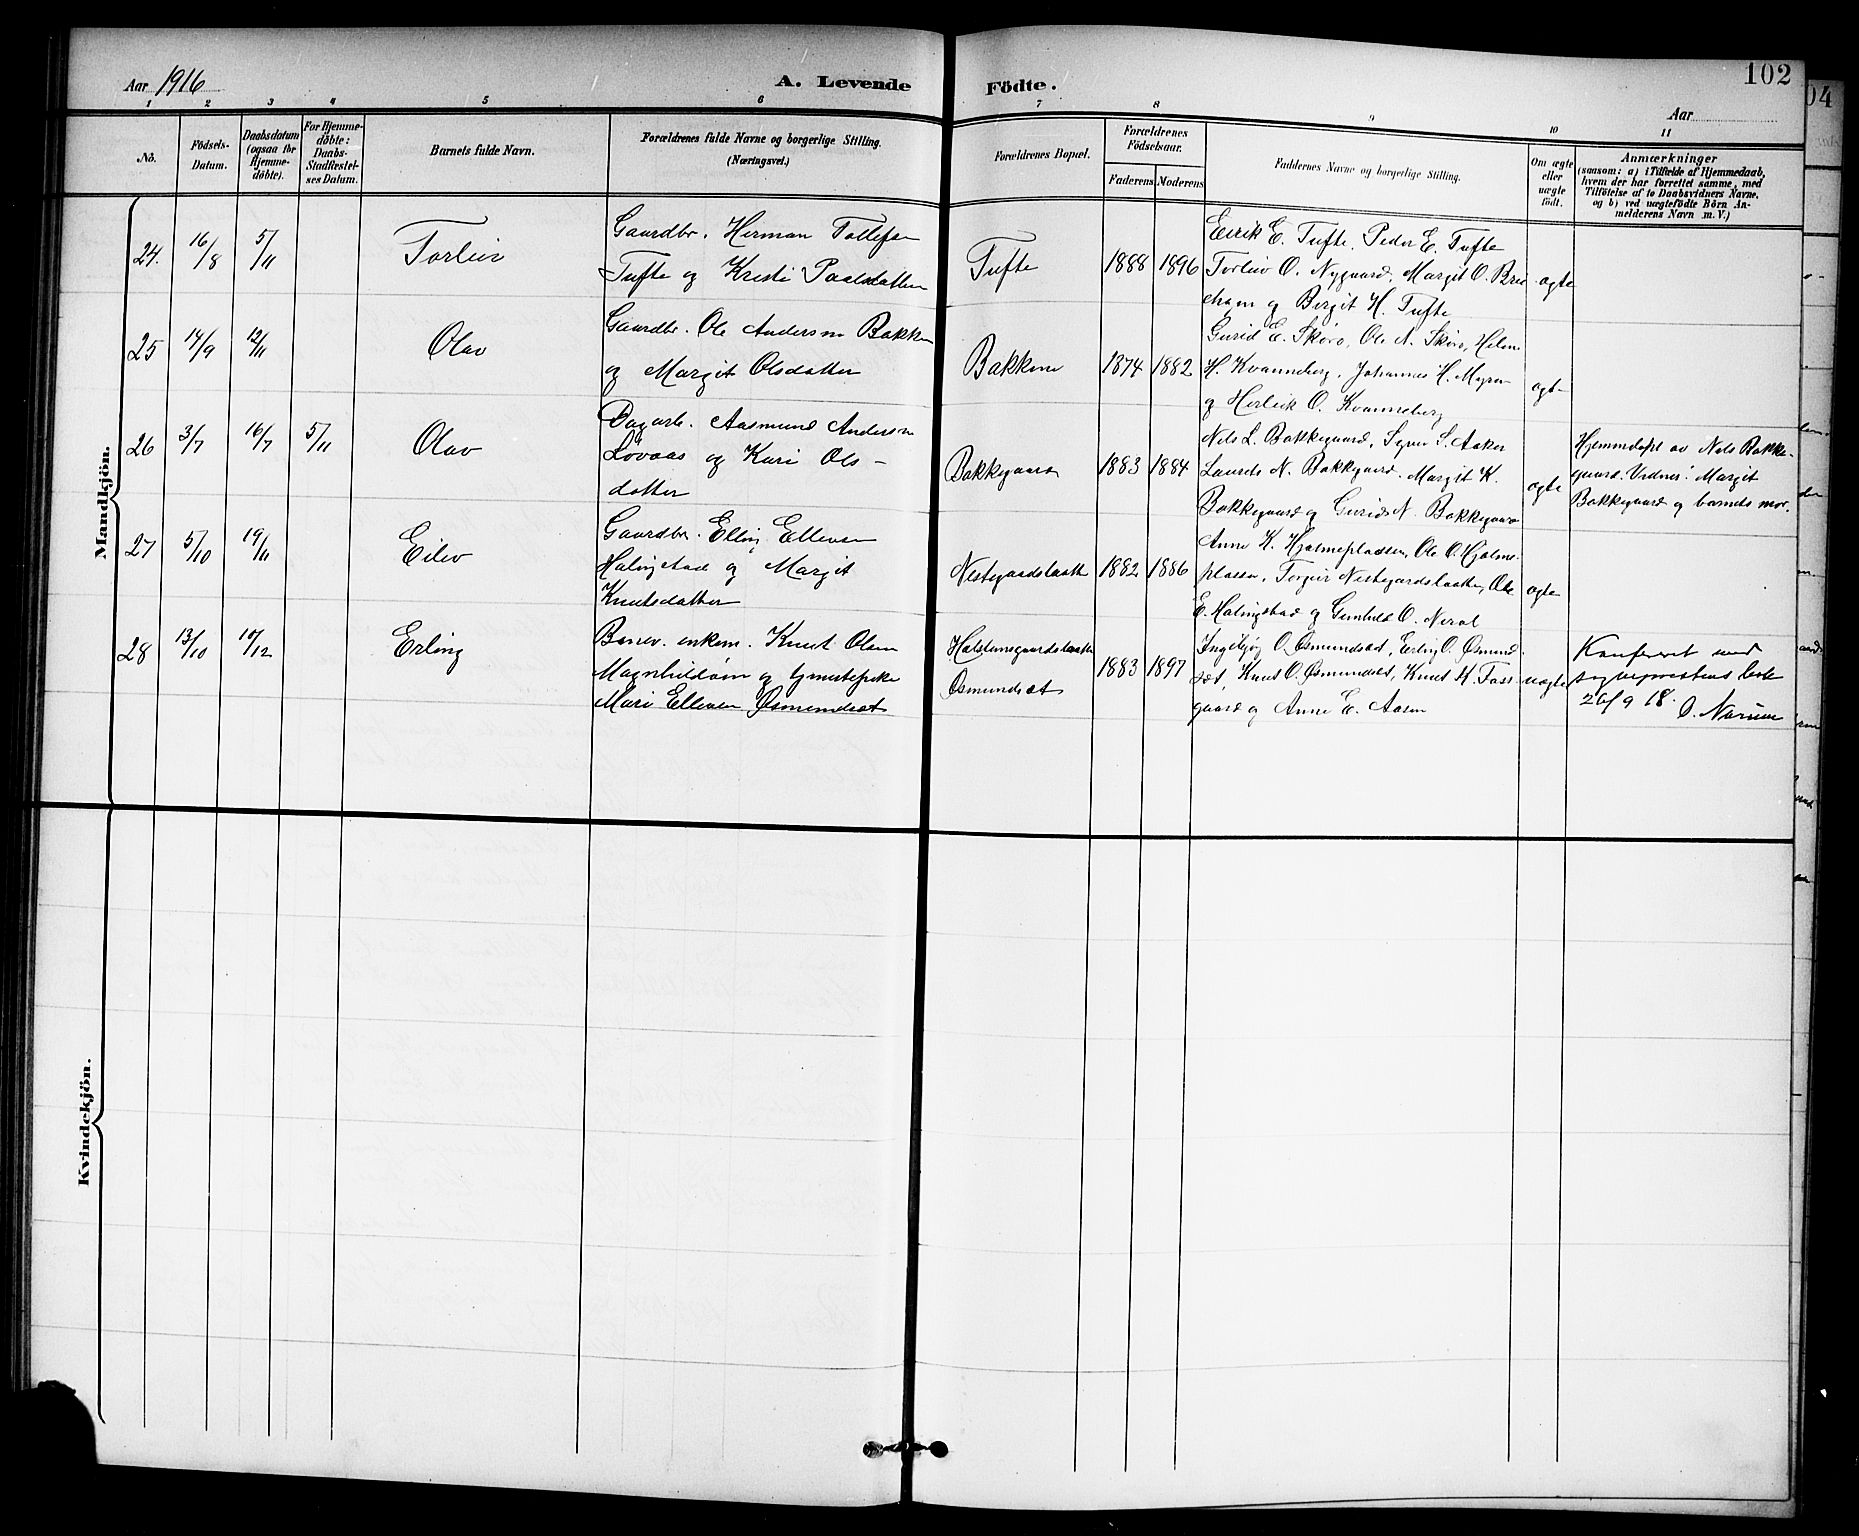 Aar 1916
A. Levende Födte.
102
Aar
1 2 3 4 5 6 7 8 9 10 11
No.
Födsels-Datum.
Daabsdatum (ogsaa for Hjemme-döbte).
For Hjemme-döbte: Daabs-Stadfæstel-ses Datum.
Barnets fulde Navn.
Forældrenes fulde Navne og borgerlige Stilling. (Næringsvei.)
Forældrenes Bopæl.
Forældrenes Födselsaar.
Faderens Moderens
Faddernes Navne og borgerlige Stilling.
Om ægte eller uægte födt.
Anmærkninger
(saasom: a) i Tilfælde af Hjemmedaab, hvem der har forrettet samme, med Tilföielse af to Daabsvidners Navne, og b) ved uægtefödte Börn An-melderens Navn m. V.)
Mandkjön.
24. 16/8 5/11 Torleiv
Gaardbr. Herman Tollefsen
Tufte og Kristi Paalsdatter
Tufte 1888 1896
Eirik E. Tufte, Peder E. Tufte
Torleiv O. Nygaard, Margit O. Bre
og Birgit H. Tufte
ægte
25 14/9 12/11 Olav
Gaardbr. Ole Andersen Bakken
og Margit Olsdatter
Bakkene 1874 1882
Gurid E. Skøro, Ole N. Skøro,
H. Kvanneberg, Johannes H. Myren
og Herleik O. Kvanneberg
ægte
26 3/7 16/7 5/11 Olav
Dagarb. Aasmund Andersen
Løvaas og Kari Ols-
datter
Bakkegaard 1883 1884
Nils L. Bakkegaard, S. Aaker
Laurets N. Bakkegaard, Margit K.
Bakkegaard og Gurid N. Bakkegaard
ægte
Hjemmedøpt av Nels Bakke-
gaard. Vidner: Margit
Bakkegaard og barnets mor.
27 5/10 19/11 Eilev
Gaardbr. Elling Ellevsen
Halingstad og Margit
Knutsdatter
Nestegaardslaatten 1882 1886
Anne K. Hjelmepladsen, Ole O. Hjelme-
plassen, Torgeir Nestegaardslaatten, Ole
E. Halingstad og Gunhild O. Neral
ægte
28 13/10 10/12 Erling
enkem. Knut Olsen
Magnhildøin og tjenestepike
Mari Ellevsen Øsmundset
Halstensgaardslaatten
Øsmundset
1883 1897
Ingebjøg O. Øsmundset, Erling O. Øsmund
set, Knut O. Øsmundset, Knut K. Foss-
gaard og Anne E. Aasen
uægte
Konferert med
sogneprestens bok
26/9 18. O. Narum
Kvindekjön.
04